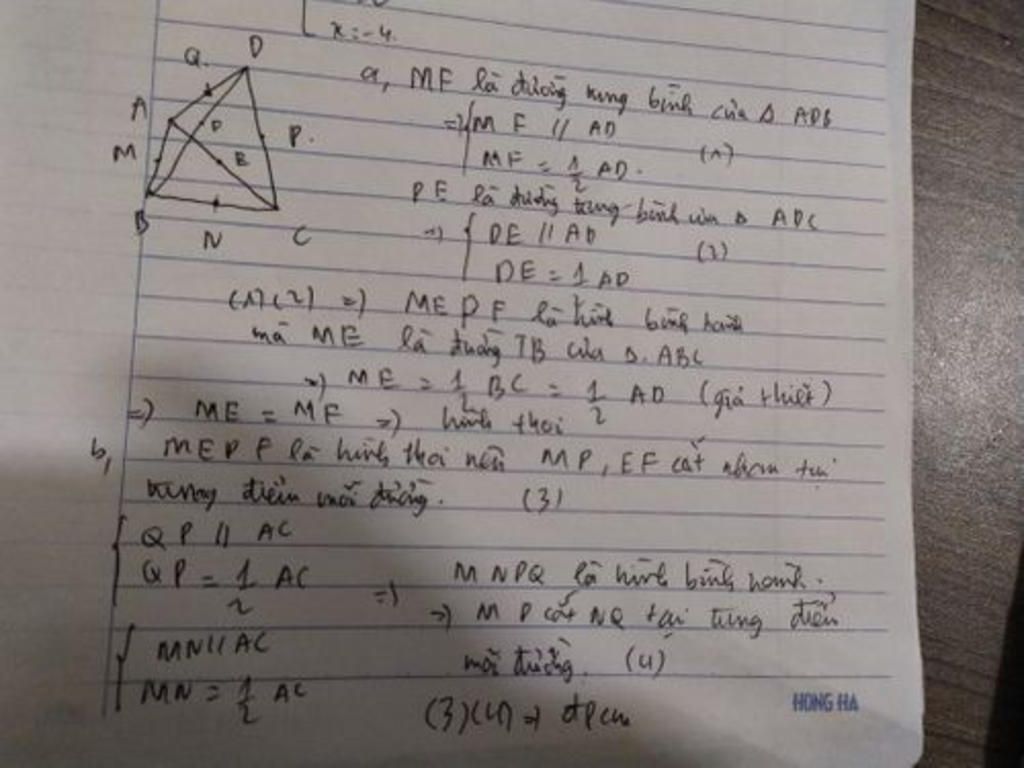 x = -4.
Q D
A F
M E P.
B N C
a, MF là đường trung bình của Δ ADB
=> { MF // AD
MF = 1/2 AD. (1)
PE là đường trung bình của Δ ADC
=> { PE // AD (2)
PE = 1 AD
(1)(2) => MEPF là hình bình hành
mà ME là đường TB của Δ. ABC
=> ME = 1/2 BC = 1/2 AD (giả thiết)
=> ME = MF => hình thoi
b, MEPF là hình thoi nên MP, EF cắt nhau tại
trung điểm mỗi đường. (3)
{ QP // AC
QP = 1/2 AC => MNPQ là hình bình hành.
{ MN // AC => MP cắt NQ tại trung điểm
mỗi đường. (4)
MN = 1/2 AC
(3)(4) => đpcm
HONG HA